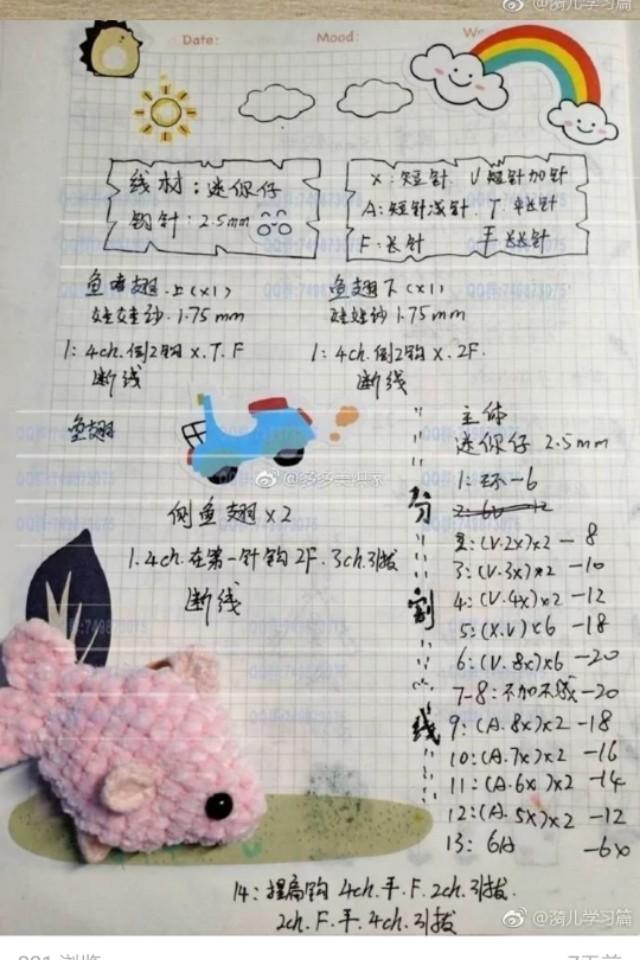 @漪儿学习篇
Date:
Mood:
线材：迷你仔
钩针：2.5mm
X：短针 V短针加针
A：短针减针 T 中长针
F：长针
鱼翅下(x1)
娃娃纱.1.75mm
娃娃纱 1.75mm
1：4ch.倒2钩 X.T.F
断线
1：4ch.倒2钩 X.2F.
断线
鱼翅
@多多美织家
侧鱼翅 x2
1.4ch.在第一针钩 2F.3ch.引拔
断线
分割线
主体
迷你仔 2.5mm
1：环-6
:(V.2X)x2 - 8
3:(V.3X)x2 -10
4:(V.4X)x2 -12
5:(X.V)x6 -18
6:(V.8X)x6 -20
7-8:不加不减-20
9:(A.8X)x2 -18
10:(A.7X)x2 -16
11:(A.6X)x2 -14
12:(A.5X)x2 -12
13: 6A -6X
14: 钩 4ch.F.2ch.引拔.
2ch.F.4ch.引拔
@漪儿学习篇
7天前